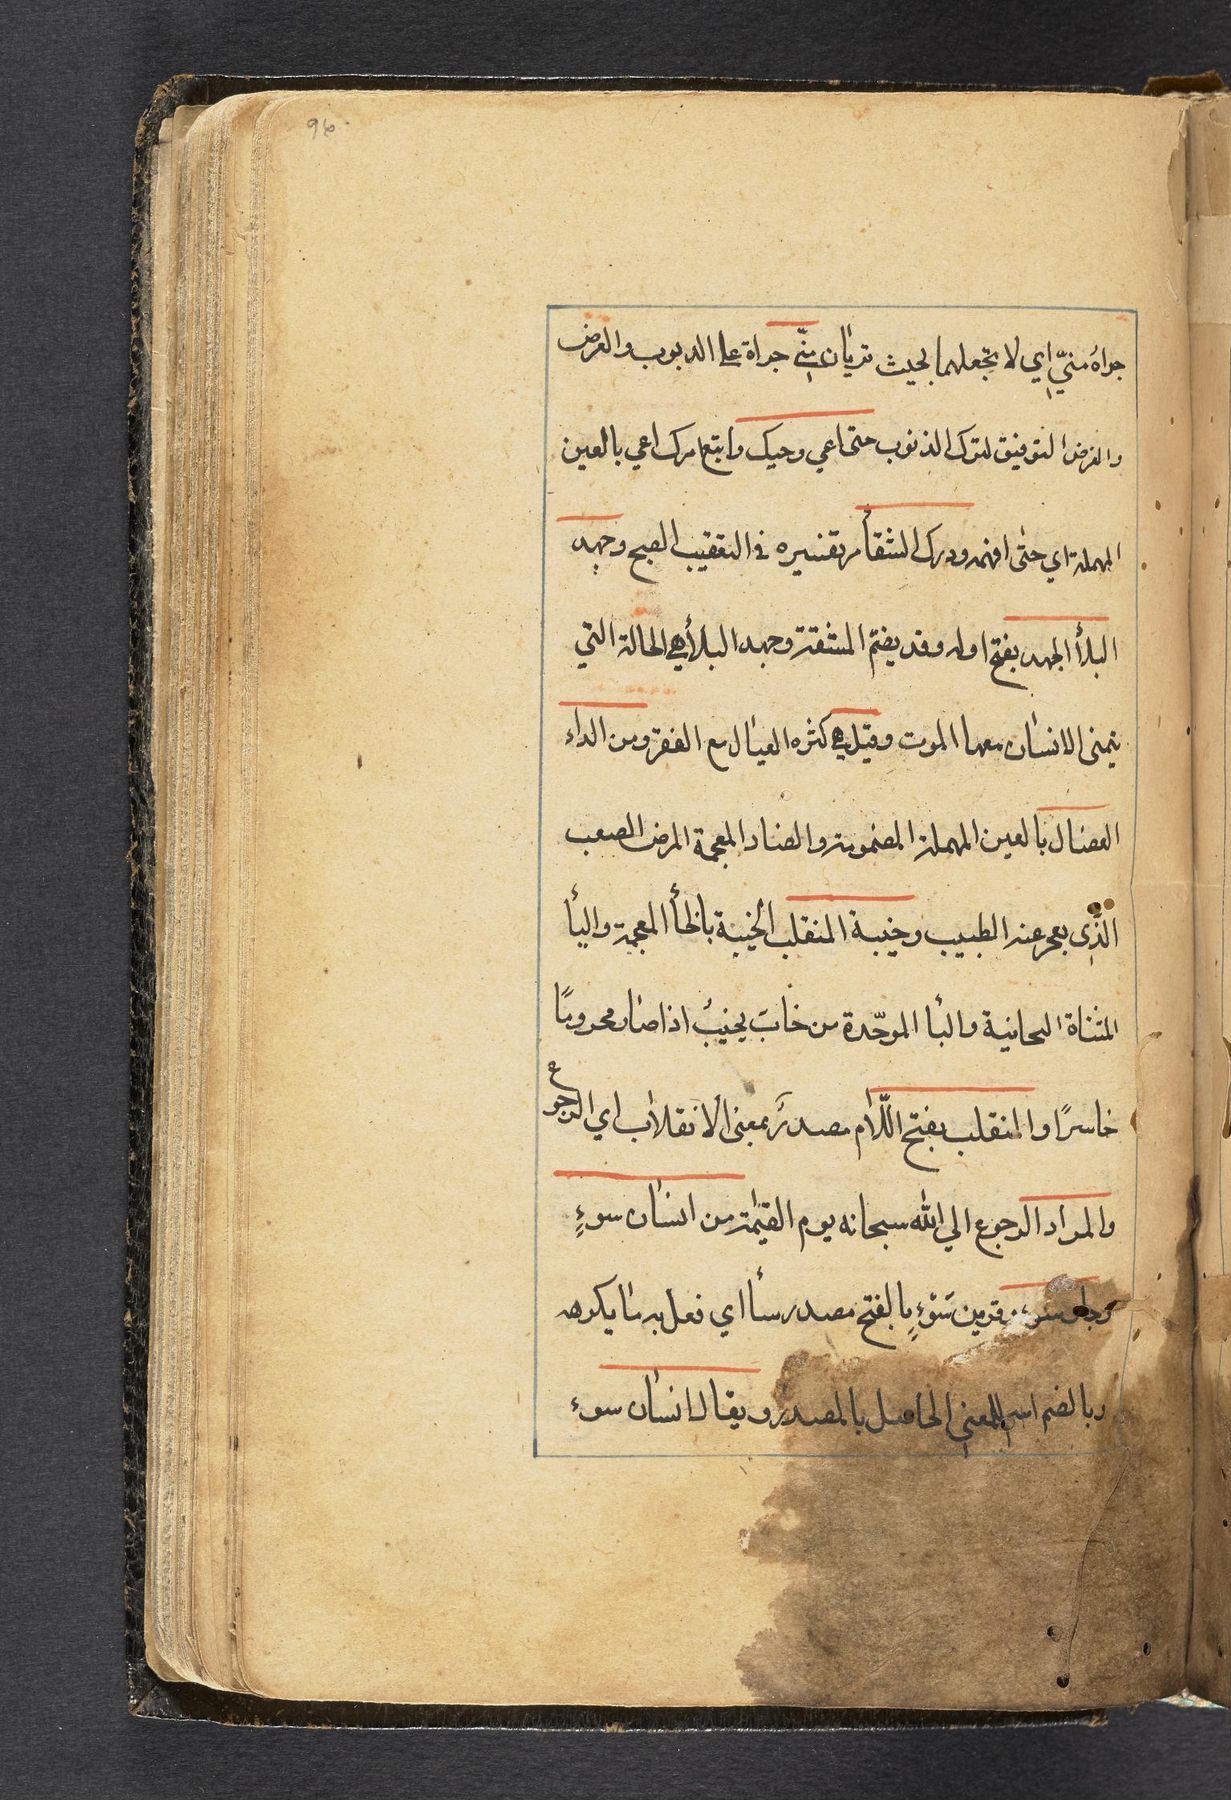 96
جراة منيّ اي لا تجعلهما بحيث تريان منّي جراة علي الذنوب والغرض
والغرض التوفيق لترك الذنوب حتى اعي وحيك واتبع امرك اعي بالعين
المهملة اي حتى افهم ودرك الشقأ مر تفسيره في التعقيب الصبح وجهد
البلأ الجهد بفتح اوله وقد يضم المشقة وجهد البلأ هي الحالة التي
يتمنى الانسان معها الموت وقيل هي كثره العيال مع الفقر ومن الداء
العضال بالعين المهملة المضمومة والضاد المعجمة المرض الصعب
الذي يعجز عنه الطبيب وخيبة المنقلب الخيبة بالخأ المعجمة واليأ
المثناة التحانية والبأ الموحّدة من خابَ يخيبُ اذا صار محرومًا
خاسرًا والمنقلب بفتح اللّام مصدر بمعنى الانقلاب اي الرجوع
والمراد الرجوع الي الله سبحانه يوم القيمة من انسان سوءٍ
وجار سوء وقرين سَوْءٍ بالفتح مصدر سأ اي فعل به ما يكره
وبالضم اسم للمعني الحاصل بالمصدر ويقال انسان سوء